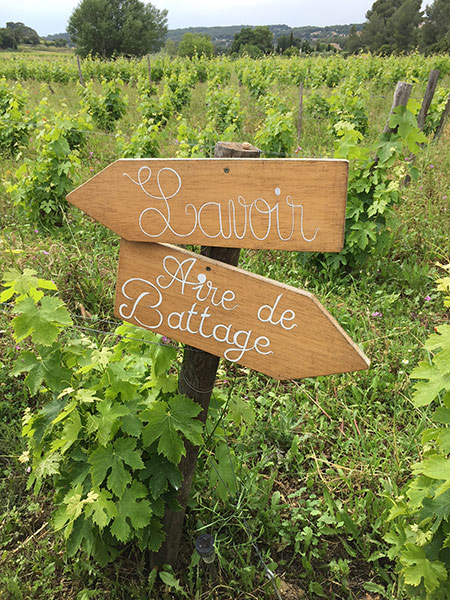 Lavoir
Aire de
Battage